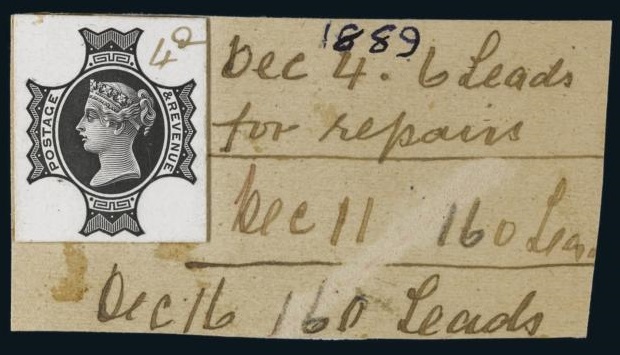 1889
4D
Dec 4. 6 Leads
for repairs
POSTAGE & REVENUE
Dec 11 160 Lea
Dec 16 160 Leads